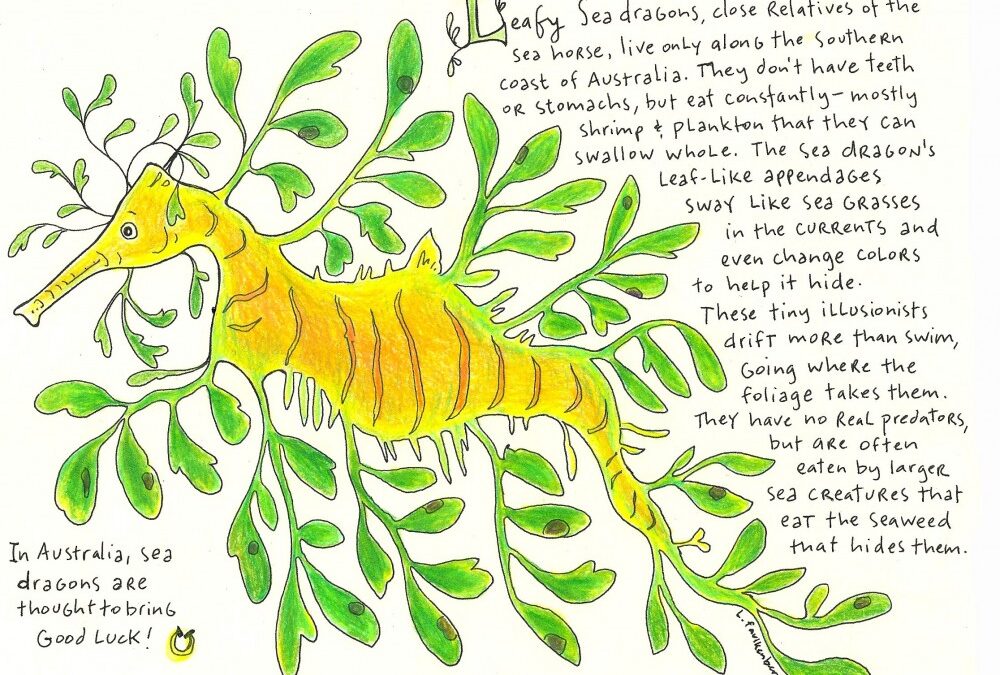 Leafy Sea dragons, close Relatives of the
sea horse, live only along the Southern
coast of Australia. They don't have teeth
or stomachs, but eat constantly - mostly
shrimp & plankton that they can
swallow whole. The sea dragon's
Leaf-Like appendages
sway like sea Grasses
in the currents and
even change colors
to help it hide.
These tiny illusionists
drift more than swim,
Going where the
foliage takes them.
They have no Real predators,
but are often
eaten by larger
sea creatures that
eat the seaweed
that hides them.
In Australia, sea
dragons are
thought to bring
Good Luck!